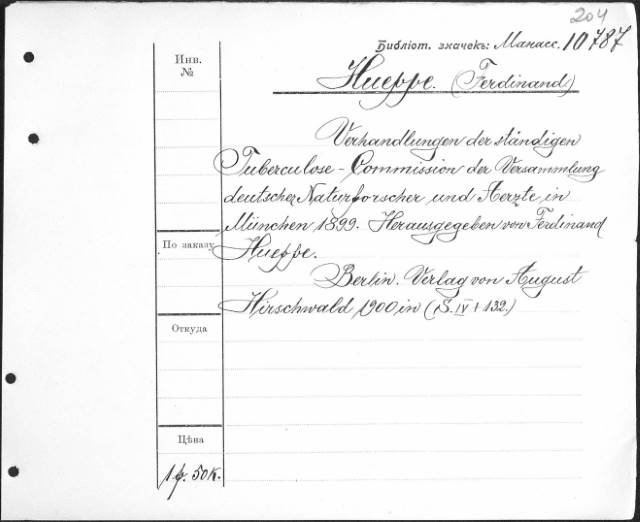 204
Библіот. значекъ: Манасс. 10787
Инв.
№
Hueppe. (Ferdinand)
Verhandlungen der ständigen
Tuberculose - Commission der Versammlung
deutscher Naturforscher und Aerzte in
München 1899. Herausgegeben von Ferdinand
По заказу
Hueppe.
Berlin. Verlag von August
Hirschwald 1900 in (S. IV + 132.)
Откуда
Цѣна
1 р. 50 к.